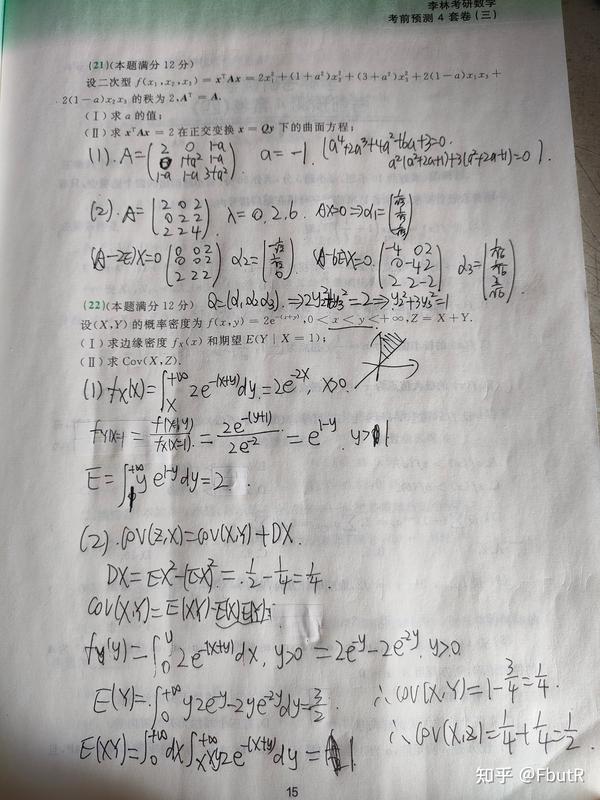 李林考研数学
考前预测 4 套卷(三)
(21)(本题满分 12 分)
设二次型 f(x₁,x₂,x₃) = xᵀAx = 2x₁² + (1+a²)x₂² + (3+a²)x₃² + 2(1-a)x₁x₃ +
2(1-a)x₂x₃ 的秩为 2,Aᵀ = A.
(Ⅰ) 求 a 的值;
(Ⅱ) 求 xᵀAx = 2 在正交变换 x = Qy 下的曲面方程;
(1). A = (2 0 1-a; 0 1+a² 1-a; 1-a 1-a 3+a²) a = -1. (a⁴+2a³+4a²+6a+3=0.
a²(a²+2a+1)+3(a²+2a+1)=0).
(2). A = (2 0 2; 0 2 2; 2 2 4) λ = 0, 2, 6. AX=0 ⇒ α₁ =
(A-2E)X=0 (0 0 2; 0 0 2; 2 2 2) α₂ = (A-6E)X=0. (-4 0 2; 0 -4 2; 2 2 -2) α₃ =
Q=(α₁,α₂,α₃). ⇒ 2y₂²+6y₃² = 2 ⇒ y₂²+3y₃²=1
(22)(本题满分 12 分)
设(X,Y) 的概率密度为 f(x,y) = 2e^{-(x+y)},0 < x < y < +∞,Z = X+Y.
(Ⅰ) 求边缘密度 f_X(x) 和期望 E(Y | X = 1);
(Ⅱ) 求 Cov(X,Z).
(1) f_X(x) = ∫_x^{+∞} 2e^{-(x+y)}dy = 2e^{-2x}, x>0.
f_{Y|X=1} = f(x,y)/f_X(x=1) = 2e^{-(y+1)}/2e^{-2} = e^{1-y} y>1
E = ∫_1^{+∞} y e^{1-y}dy = 2.
(2). COV(Z,X) = COV(X,Y) + DX.
DX = EX² - (EX)² = 1/2 - 1/4 = 1/4.
COV(X,Y) = E(XY) - E(X)E(Y).
f_Y(y) = ∫_0^y 2e^{-(x+y)}dx, y>0 = 2e^{-y} - 2e^{-2y} y>0
E(Y) = ∫_0^{+∞} y2e^{-y} - 2ye^{-2y}dy = 3/2
∴ COV(X,Y) = 1 - 3/4 = 1/4.
E(XY) = ∫_0^{+∞}dx∫_x^{+∞} xy2e^{-(x+y)}dy = 1
∴ COV(X,Z) = 1/4 + 1/4 = 1/2.
15
知乎 @FbutR